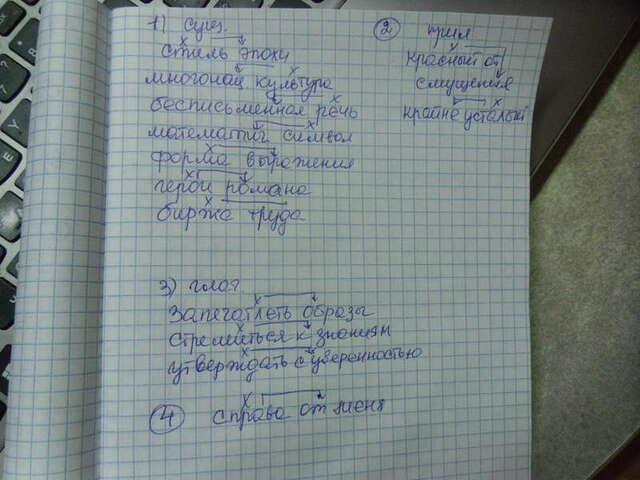 1) сущ.
стиль эпохи
многонац культура
бесписьменная речь
математич символ
форма выражения
герой романа
биржа труда
2 прил
красный от
смущения
крайне усталый
3) глаг
Запечатлеть образы
стремиться к знаниям
утверждать с уверенностью
4 справа от меня